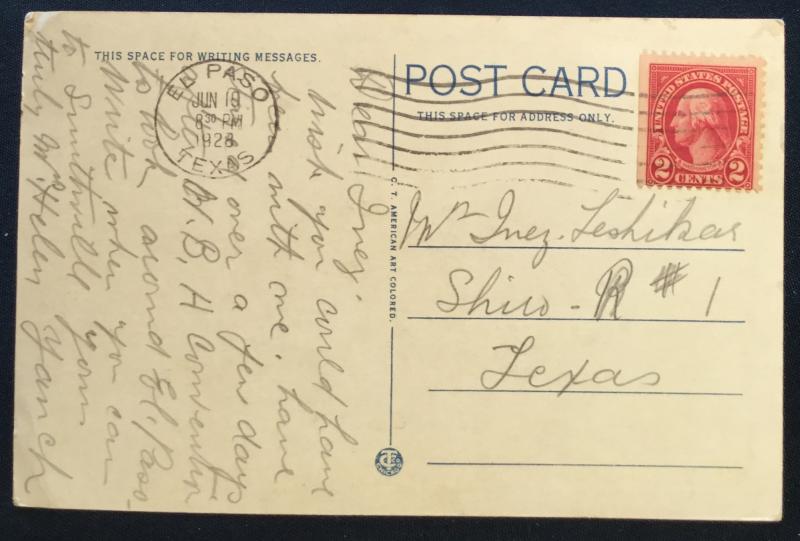 THIS SPACE FOR WRITING MESSAGES.
POST CARD
THIS SPACE FOR ADDRESS ONLY.
EL PASO
JUN 19
8 30 PM
1928
TEXAS
UNITED STATES POSTAGE
2 CENTS 2
Dear Inez.
Wish you could have
been with me. have
over a few days
W.B.A Convention
to look around El. Paso
Write when you can
to Smithville your
truly Mrs Helen Yanch
Inez. Leshikar
Shiro - R # 1
Texas
C. T. AMERICAN ART COLORED.